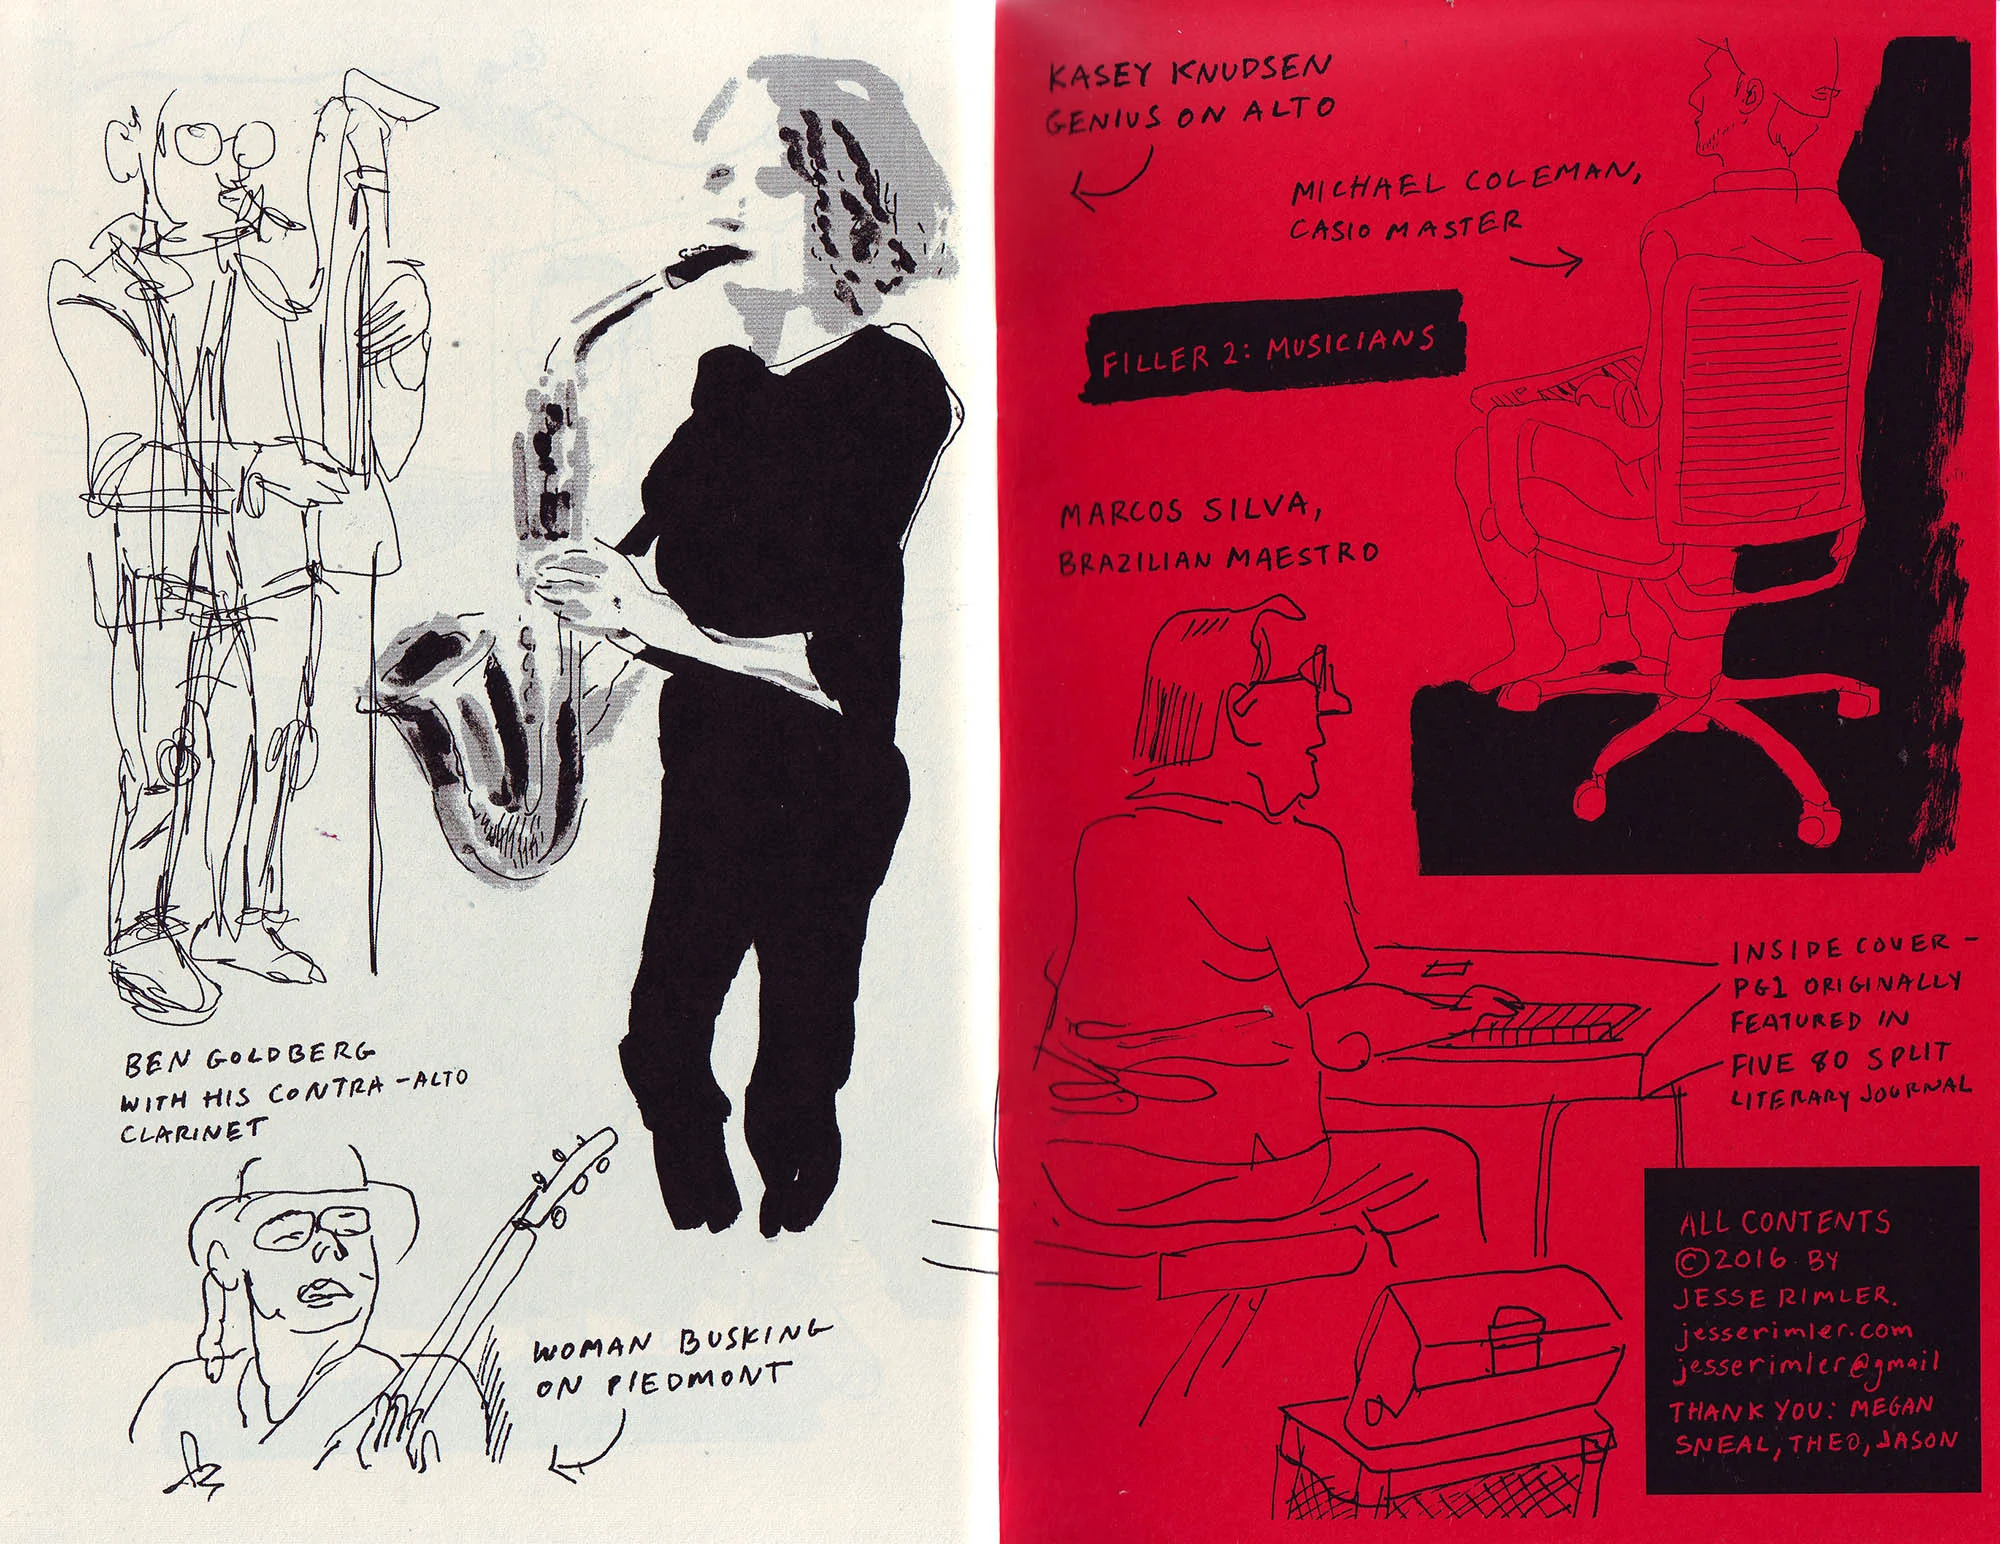 BEN GOLDBERG
WITH HIS CONTRA-ALTO
CLARINET
WOMAN BUSKING
ON PIEDMONT
KASEY KNUDSEN
GENIUS ON ALTO
MICHAEL COLEMAN,
CASIO MASTER
FILLER 2: MUSICIANS
MARCOS SILVA,
BRAZILIAN MAESTRO
INSIDE COVER -
PG1 ORIGINALLY
FEATURED IN
FIVE 80 SPLIT
LITERARY JOURNAL
ALL CONTENTS
©2016 BY
JESSE RIMLER.
jesserimler.com
jesserimler@gmail
THANK YOU: MEGAN
SNEAL, THEO, JASON